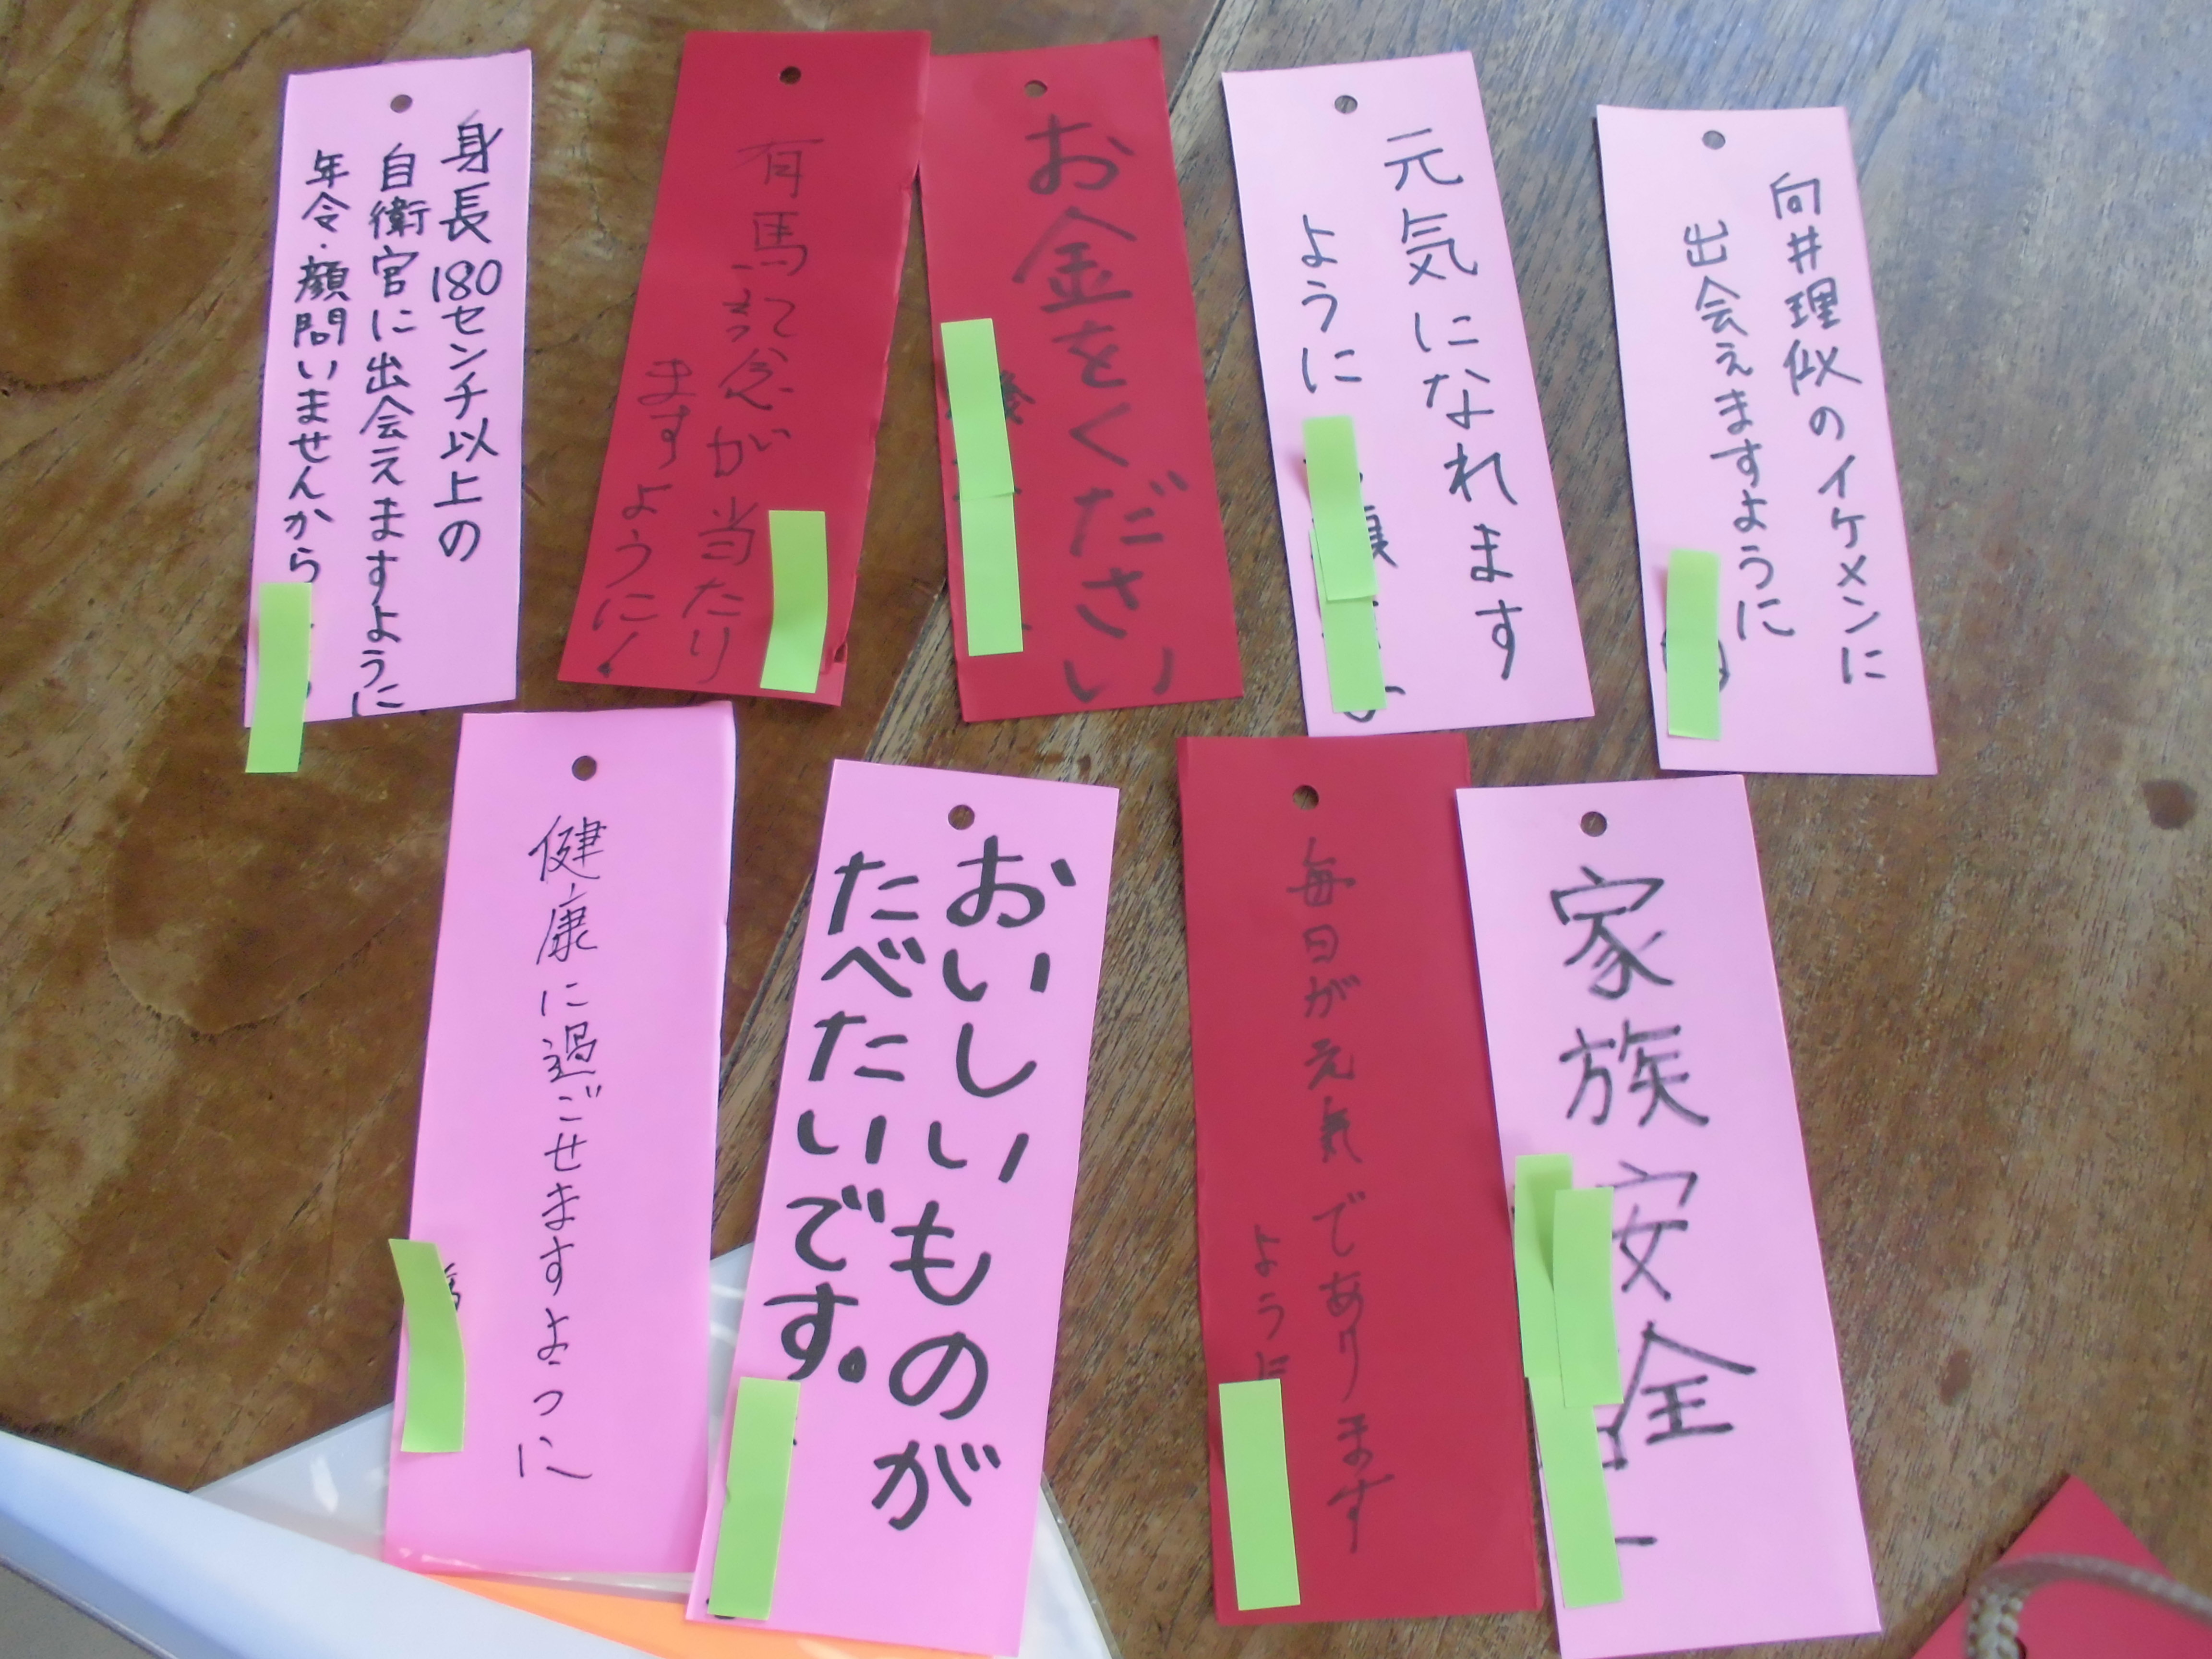 身長180センチ以上の
自衛官に出会えますように
年令・顔問いませんから
有馬記念が当たり
ますように!
お金をください
元気になれます
ように
向井理似のイケメンに
出会えますように
健康に過ごせますように
おいしいものが
たべたいです。
毎日が元気であります
ように
家族安全